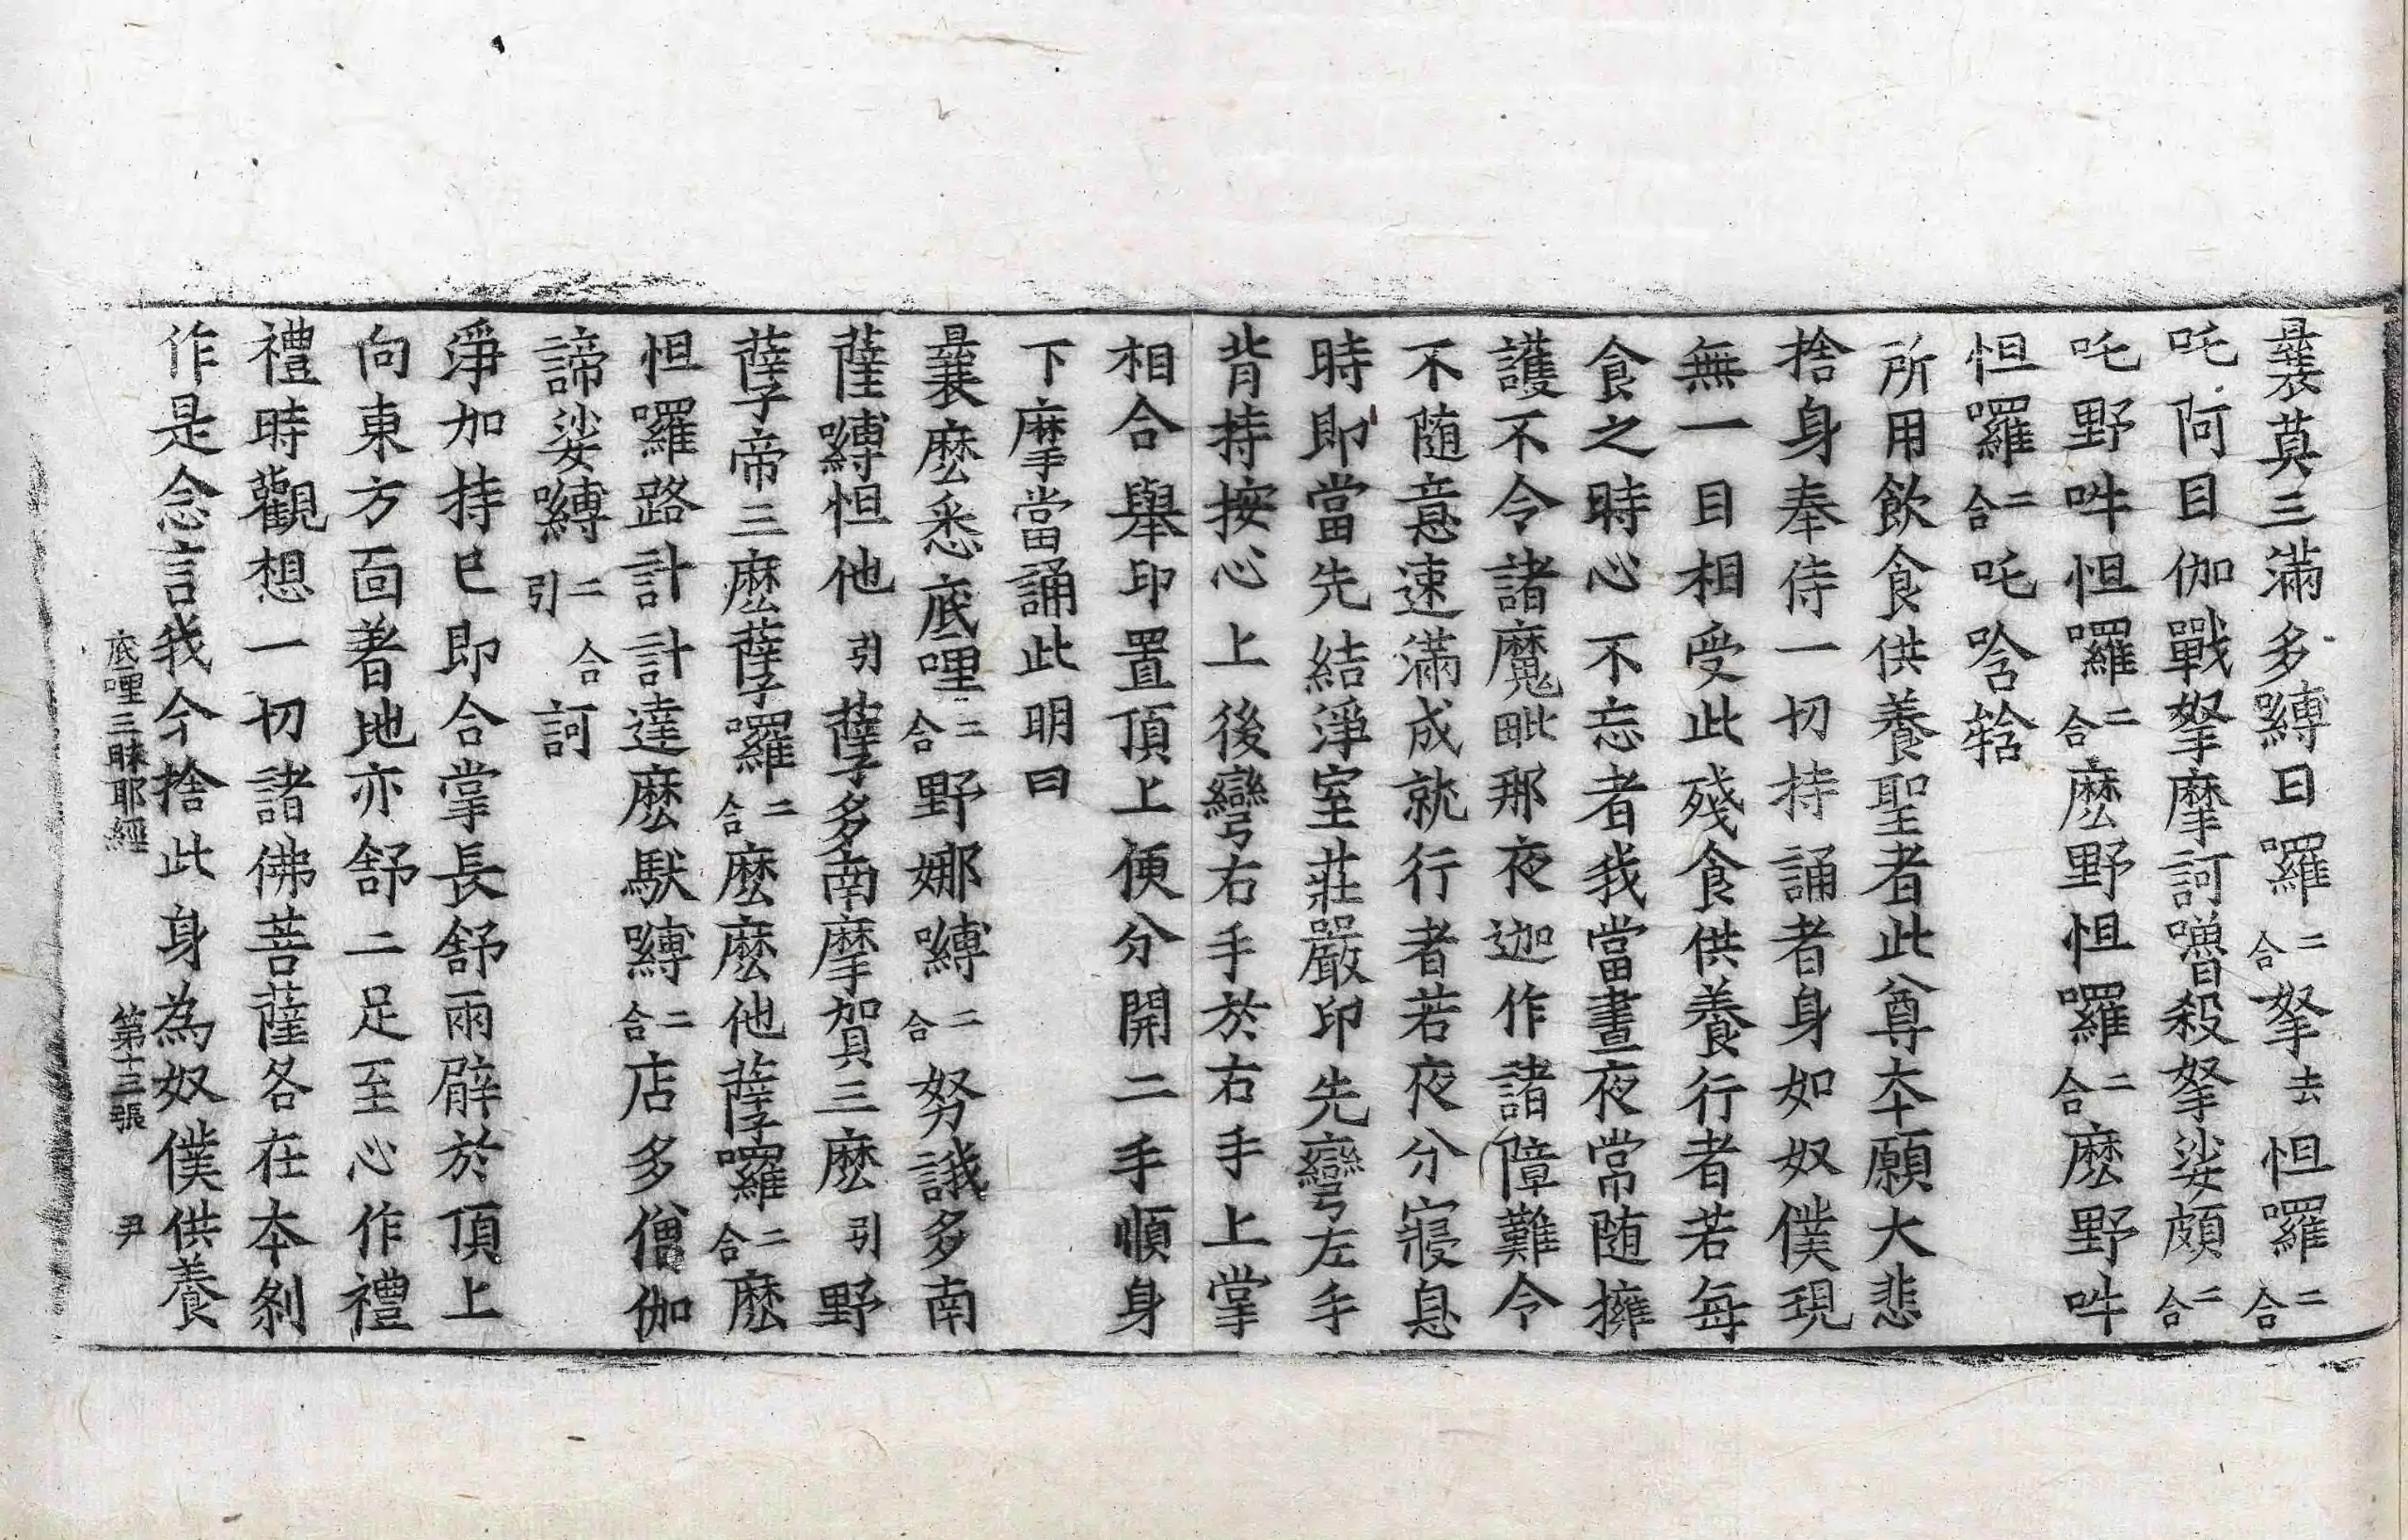 曩莫三滿多嚩日囉二合拏去怛囉二合
吒阿目伽戰拏摩訶嚕殺拏娑頗二合
吒野吽怛囉二合麽野怛囉二合麽野吽
怛囉二合吒唅𤚥
所用飲食供養聖者此尊夲願大悲
捨身奉侍一切持誦者身如奴僕現
無一目相受此殘食供養行者若每
食之時心不忘者我當晝夜常随擁
護不令諸魔毗那夜迦作諸障難令
不随意速滿成就行者若夜分寢息
時即當先結淨室莊嚴印先彎左手
背持按心上後彎右手於右手上掌
相合舉印置頂上便分開二手順身
下摩當誦此明曰
曩麽悉底哩二合野娜嚩二合努誐多南
薩嚩怛他引孽多南摩賀三麽引野
孽帝三麽孽囉二合麽麽他孽囉二合麽
怛囉路計計達麽馱嚩二合店多僧伽
諦娑嚩二合引訶
淨加持已即合掌長舒兩臂於頂上
向東方面著地亦舒二足至心作禮
禮時觀想一切諸佛菩薩各在夲剎
作是念言我今捨此身為奴僕供養
底哩三昧耶經 第十三張 尹